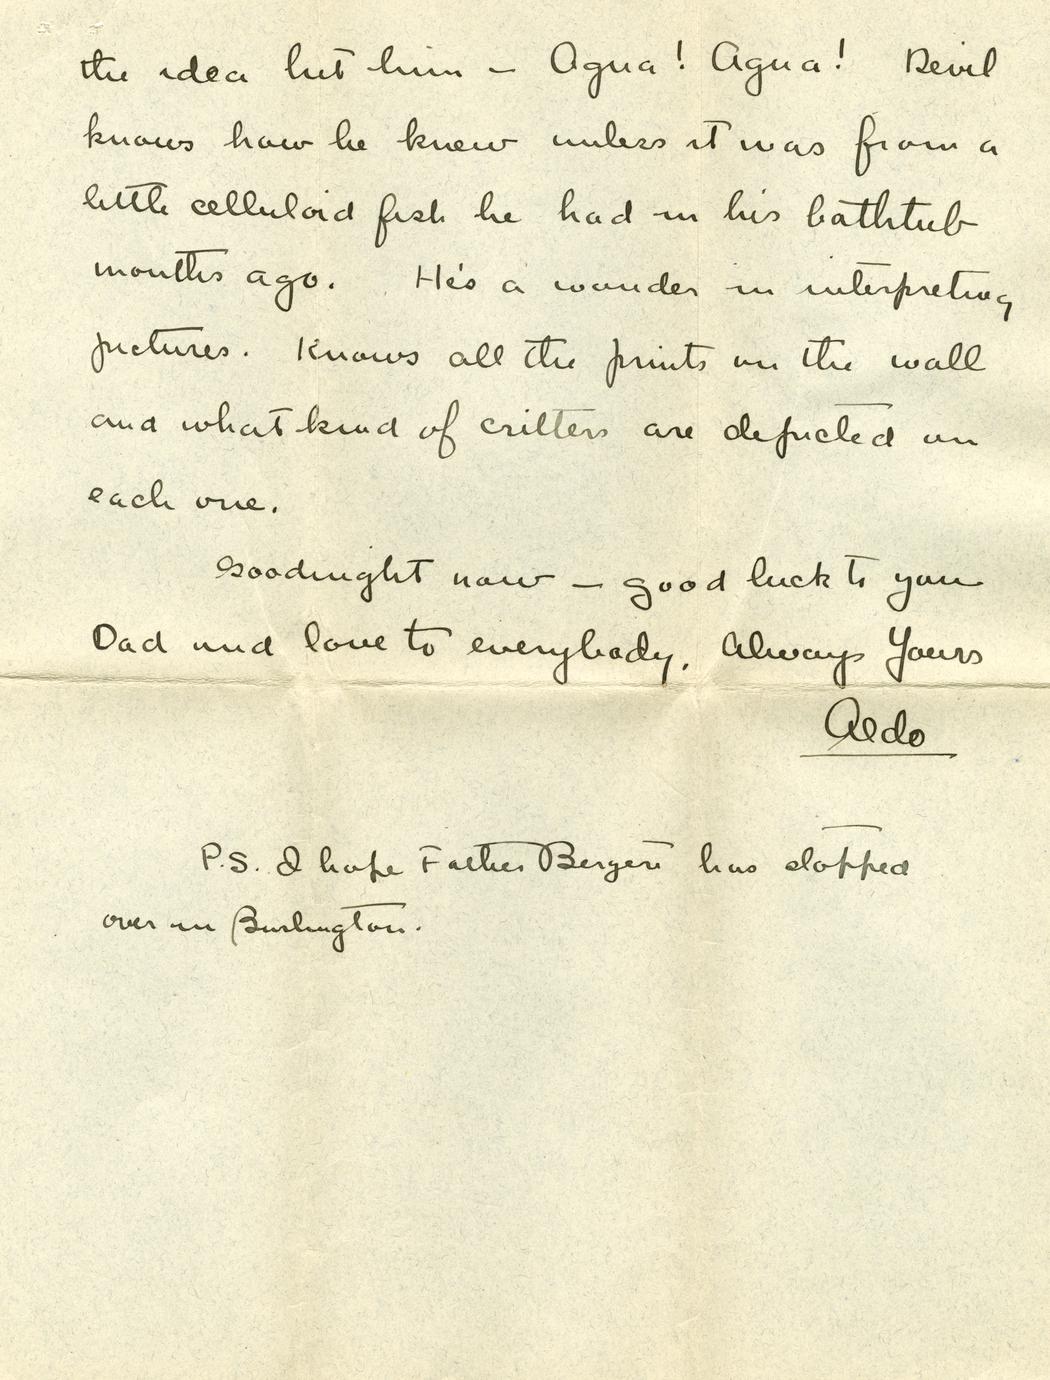 the idea hit him – Agua! Agua! Devil
knows how he knew unless it was from a
little celluloid fish he had in his bathtub
months ago. He's a wonder in interpreting
pictures. Knows all the prints on the wall
and what kind of critters are depicted on
each one.
Goodnight now – good luck to you
Dad and love to everybody. Always Yours
Aldo
P.S. I hope Father Bergere has stopped
over in Burlington.